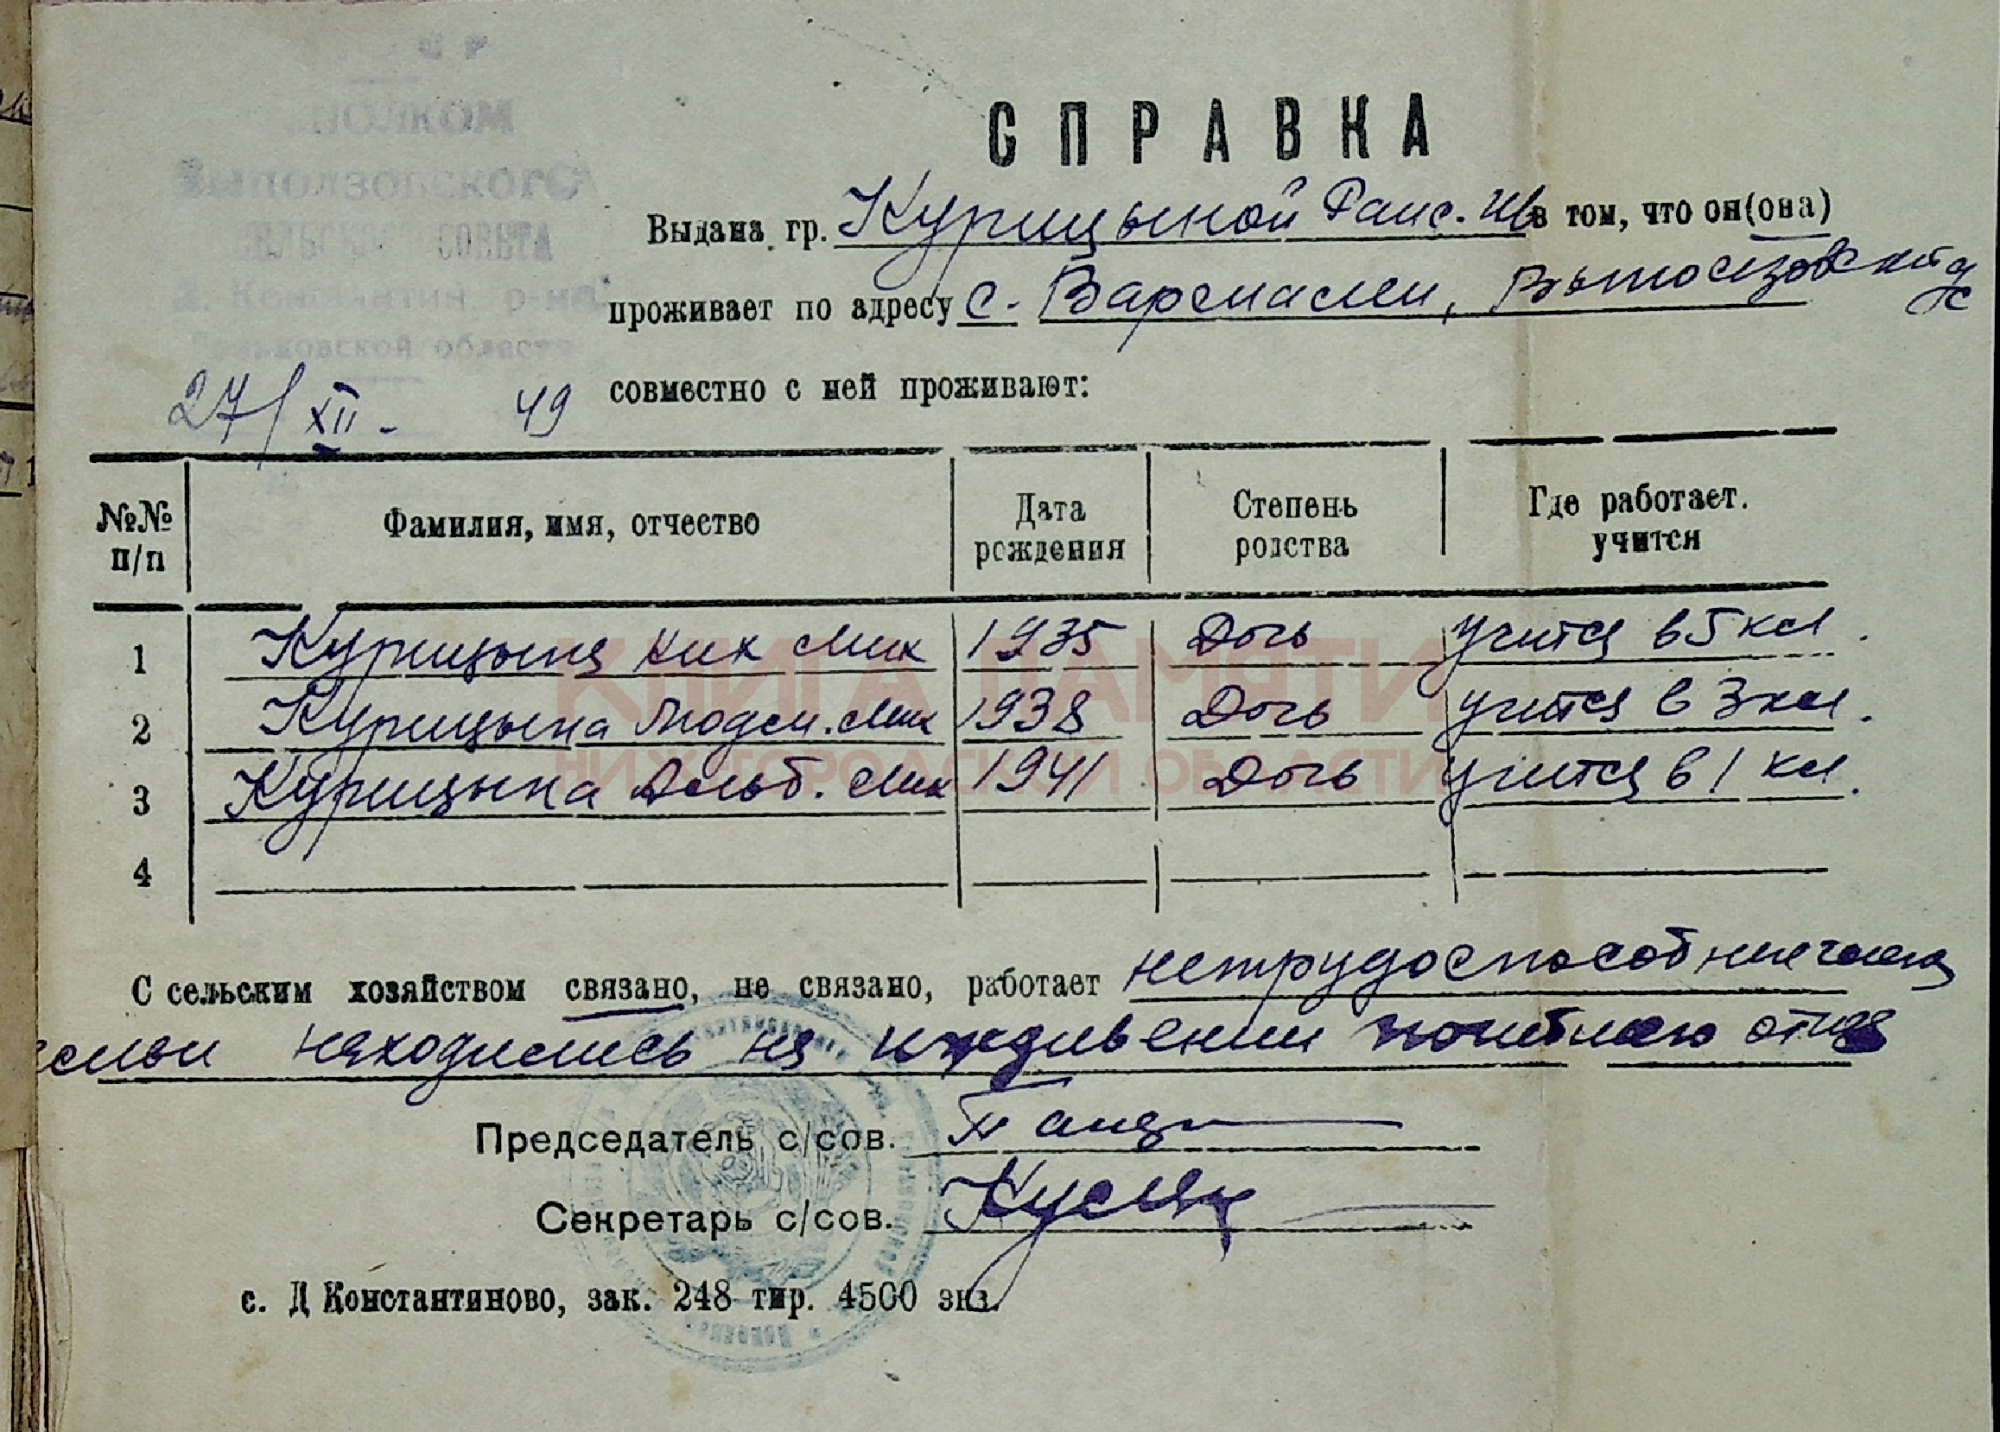 СПРАВКА
ПОЛКОМ
Выползовского
СЕЛЬСКОГО СОВЕТА
Д. Константин. р-на
Горьковской области
27/XII - 49
Выдана гр. Курицыной Раис. Ив в том, что он(она)
проживает по адресу с. Вармалеи, Выползовский с/с
совместно с ней проживают:
№№ п/п Фамилия, имя, отчество Дата рождения Степень родства Где работает. учится
1 Курицына Мих 1935 Дочь учится в 5 кл.
2 Курицына Людм. Мих 1938 Дочь учится в 3 кл.
3 Курицына Альб. Мих 1941 Дочь учится в 1 кл.
4
КНИГА ПАМЯТИ
НИЖЕГОРОДСКОЙ ОБЛАСТИ
С сельским хозяйством связано, не связано, работает нетрудоспособные члены
семьи находились на иждивении погибшего отца
Председатель с/сов.
Секретарь с/сов.
с. Д Константиново, зак. 248 тир. 4500 экз.